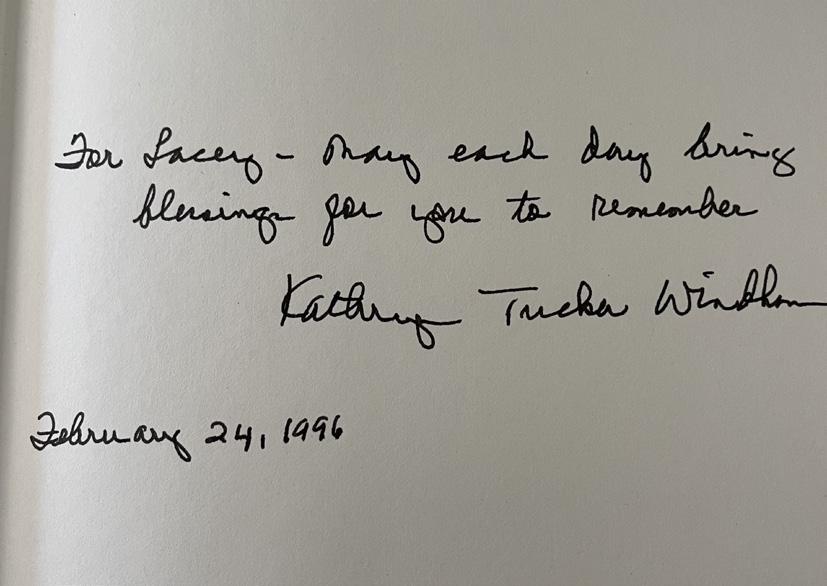 For Lacey - May each day bring
blessings for you to remember
Kathryn Tucker Windham
February 24, 1996